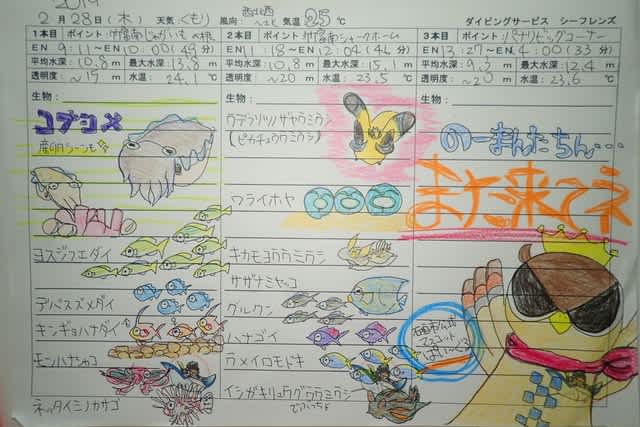 2019
2月28日(木) 天気:くもり 風向: 西北西 気温25℃ ダイビングサービス シーフレンズ
1本目 ポイント:竹富南じゃがいも
EN 9:11~EN10:00(49分)
平均水深:10.8m 最大水深:13.8m
透明度:~15m 水温:24.1℃
生物:
コブシメ
産卵シーンも
ヨスジフエダイ
デバスズメダイ
キンギョハナダイ
モンハナシャコ
ネッタイミノカサゴ
2本目 ポイント:竹富南シャークホーム
EN11:18~EN12:04(46分)
平均水深:10.8m 最大水深:15.1m
透明度:~20m 水温:23.5℃
生物:
ウデフリツノザヤウミウシ
(ピカチュウウミウシ)
ワライボヤ
キカモヨウウミウシ
サザナミヤッコ
グルクン
ハナゴイ
ウメイロモドキ
イシガキリュウグウウミウシ
でかいっちょ
3本目 ポイント:パナリビッグコーナー
EN13:27~EN14:00(33分)
平均水深:9.3m 最大水深:12.4m
透明度:~20m 水温:23.6℃
生物:
のーまんたちん…
また来てネ
マスコット
ぱいーぐる